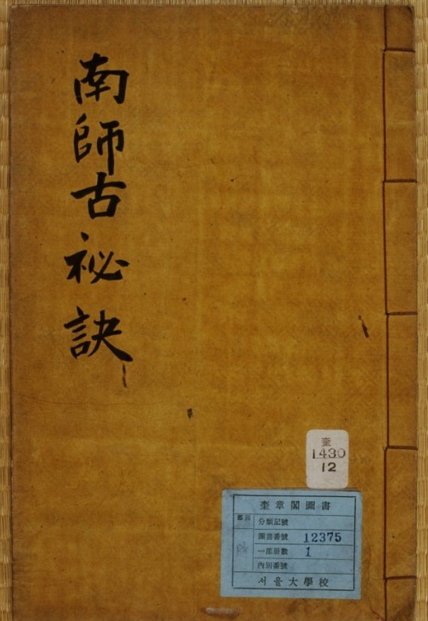 南師古祕訣
奎
1430
12
奎章閣圖書
分類記號
圖書番號 12375
一部冊數 1
內別番號
서울大學校